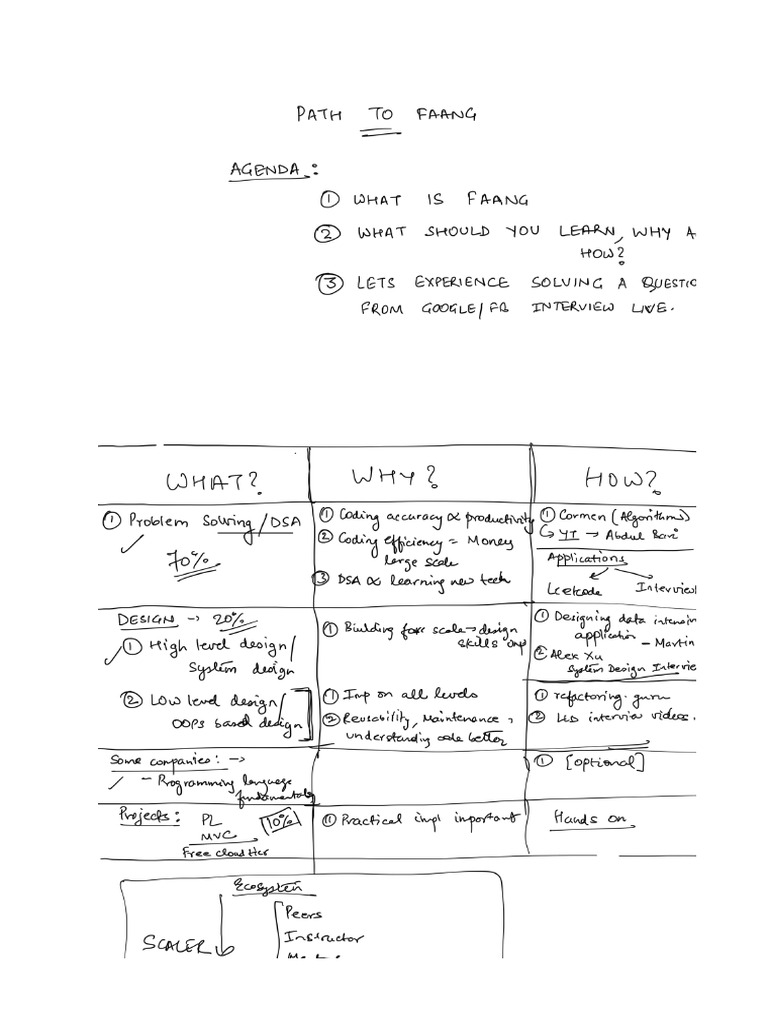 PATH TO FAANG
AGENDA:
① WHAT IS FAANG
② WHAT SHOULD YOU LEARN, WHY A
HOW?
③ LETS EXPERIENCE SOLVING A QUESTIO
FROM GOOGLE/FB INTERVIEW LIVE.
WHAT?
WHY?
HOW?
① Problem Solving/DSA
70%
① Coding accuracy ∝ productivity
② Coding efficiency = Money
large scale
③ DSA ∝ learning new tech
① Cormen (Algorithms)
↳ YT → Abdul Bari
Applications
Leetcode
Interview
DESIGN → 20%
① High level design/
System design
② LOW level design/
OOPS based design
① Building for scale → design
skills imp
① Imp on all levels
② Reusability, Maintenance,
understanding code better
① Designing data intensiv
application - Martin
② Alex Xu
System Design Intervie
① refactoring.guru
② LLD interview videos.
Some companies: →
- Programming language
fundamentals
① [optional]
Projects:
PL
MVC
10%
Free cloud tier
① Practical impl important
Hands on
Ecosystem
SCALER
Peers
Instructor